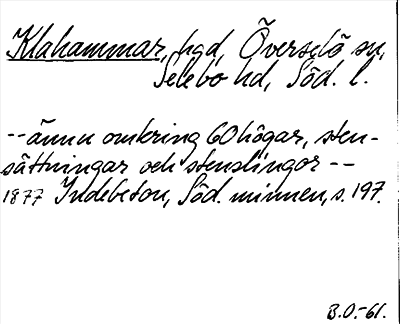 Klahammar, hgd, Överselö sn,
Selebo hd, Söd. l.
-- ännu omkring 60 högar, sten-
sättningar och stenslingor --
1877 Indebetou, Söd. minnen, s. 197.
B.O.-61.